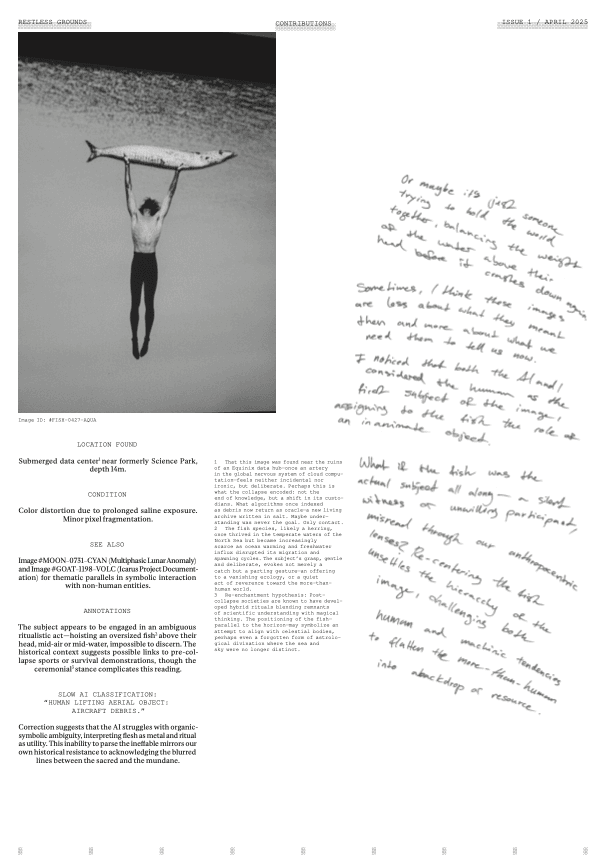 RESTLESS GROUNDS
CONTRIBUTIONS
ISSUE 1 / APRIL 2025
Image ID: #FISH-0427-AQUA
LOCATION FOUND
Submerged data center¹ near formerly Science Park,
depth 14m.
CONDITION
Color distortion due to prolonged saline exposure.
Minor pixel fragmentation.
SEE ALSO
Image #MOON-0731-CYAN (Multiphasic Lunar Anomaly)
and Image #GOAT-1198-VOLC (Icarus Project Document-
ation) for thematic parallels in symbolic interaction
with non-human entities.
ANNOTATIONS
The subject appears to be engaged in an ambiguous
ritualistic act—hoisting an oversized fish² above their
head, mid-air or mid-water, impossible to discern. The
historical context suggests possible links to pre-col-
lapse sports or survival demonstrations, though the
ceremonial³ stance complicates this reading.
SLOW AI CLASSIFICATION:
“HUMAN LIFTING AERIAL OBJECT:
AIRCRAFT DEBRIS.”
Correction suggests that the AI struggles with organic-
symbolic ambiguity, interpreting flesh as metal and ritual
as utility. This inability to parse the ineffable mirrors our
own historical resistance to acknowledging the blurred
lines between the sacred and the mundane.
1 That this image was found near the ruins
of an Equinix data hub—once an artery
in the global nervous system of cloud compu-
tation—feels neither incidental nor
ironic, but deliberate. Perhaps this is
what the collapse encoded: not the
end of knowledge, but a shift in its custo-
dians. What algorithms once indexed
as debris now return as oracle—a new living
archive written in salt. Maybe under-
standing was never the goal. Only contact.
2 The fish species, likely a herring,
once thrived in the temperate waters of the
North Sea but became increasingly
scarce as ocean warming and freshwater
influx disrupted its migration and
spawning cycles. The subject's grasp, gentle
and deliberate, evokes not merely a
catch but a parting gesture—an offering
to a vanishing ecology, or a quiet
act of reverence toward the more-than-
human world.
3 Re-enchantment hypothesis: Post-
collapse societies are known to have devel-
oped hybrid rituals blending remnants
of scientific understanding with magical
thinking. The positioning of the fish—
parallel to the horizon—may symbolize an
attempt to align with celestial bodies,
perhaps even a forgotten form of astrolo-
gical divination where the sea and
sky were no longer distinct.
Or maybe it's just someone
trying to hold the world
together, balancing the weight
of the water above their
head before it crashes down again.
Sometimes, I think these images
are less about what they meant
then and more about what we
need them to tell us now.
I noticed that both the AI and I
considered the human as the
first subject of the image,
assigning to the fish the role of
an inanimate object.
What if the fish was the
actual subject all along — a silent
witness, unwilling participant,
misread through our anthropocentric
lenses? Re-centering the fish
unsettles the hierarchy of the
image, challenging both
human and machinic tendencies
to flatten the more-than-human
into a backdrop or resource.